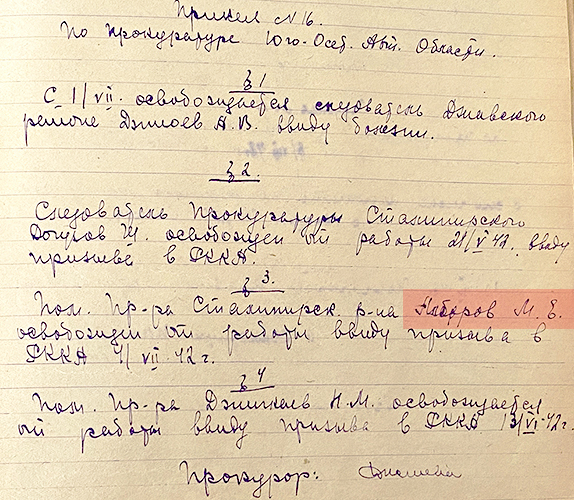 Приказ № 16.
По прокуратуре Юго-Осет. Авт. Области.
§ 1
С 1/VII. освобождается следователь Джавского
района Джиоев А.В. ввиду болезни.
§ 2.
Следователь Прокуратуры Сталинирского
освобожден от работы 21/V 42. ввиду
призыва в РККА.
§ 3.
Пом. Пр-ра Сталинирск. р-на М. Е.
освобожден от работы ввиду призыва в
РККА 4/VII 42 г.
§ 4
Пом. Пр-ра Н.М. освобождается
от работы ввиду призыва в РККА 13/VI-42 г.
Прокурор: